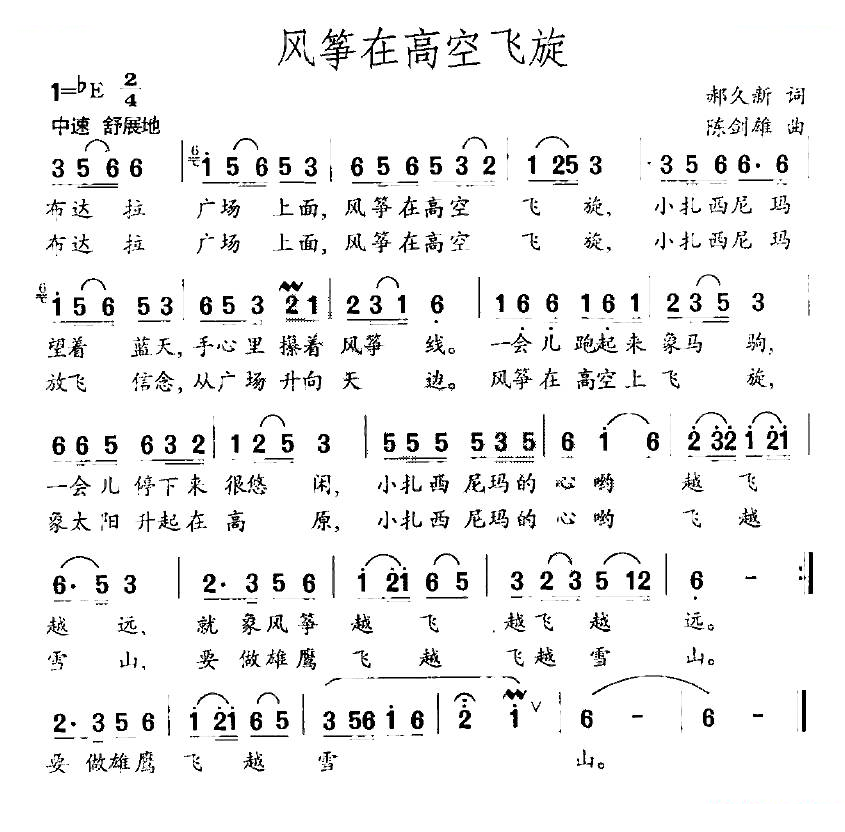 风筝在高空飞旋
1=♭E 2/4
郝久新 词
中速 舒展地
陈剑雄 曲
3 5 6 6 | 1 5 6 5 3 | 6 5 6 5 3 2 | 1 25 3 | 3 5 6 6· 6 |
布达 拉 广场 上面, 风筝在高空 飞 旋, 小扎西尼玛
布达 拉 广场 上面, 风筝在高空 飞 旋, 小扎西尼玛
1 5 6 5 3 | 6 5 3 2 1 | 2 3 1 6 | 1 6 6 1 6 1 | 2 3 5 3 |
望着 蓝天, 手心里 攥着 风筝 线。 一会儿 跑起来 象马 驹,
放飞 信念, 从广场 升向 天 边。 风筝在 高空上 飞 旋,
6 6 5 6 3 2 | 1 2 5 3 | 5 5 5 5 3 5 | 6 1 6 | 2 32 1 21 |
一会儿 停下来 很悠 闲, 小扎西 尼玛的 心 哟 越 飞
象太阳 升起在 高 原, 小扎西 尼玛的 心 哟 飞 越
6· 5 3 | 2· 3 5 6 | 1 21 6 5 | 3 2 3 5 12 | 6 - :||
越 远、 就 象风筝 越 飞 越飞 越 远。
雪 山, 要 做雄鹰 飞 越 飞越 雪 山。
2· 3 5 6 | 1 21 6 5 | 3 56 1 6 | 2 1 ∨ | 6 - | 6 - ||
要 做雄鹰 飞 越 雪 山。